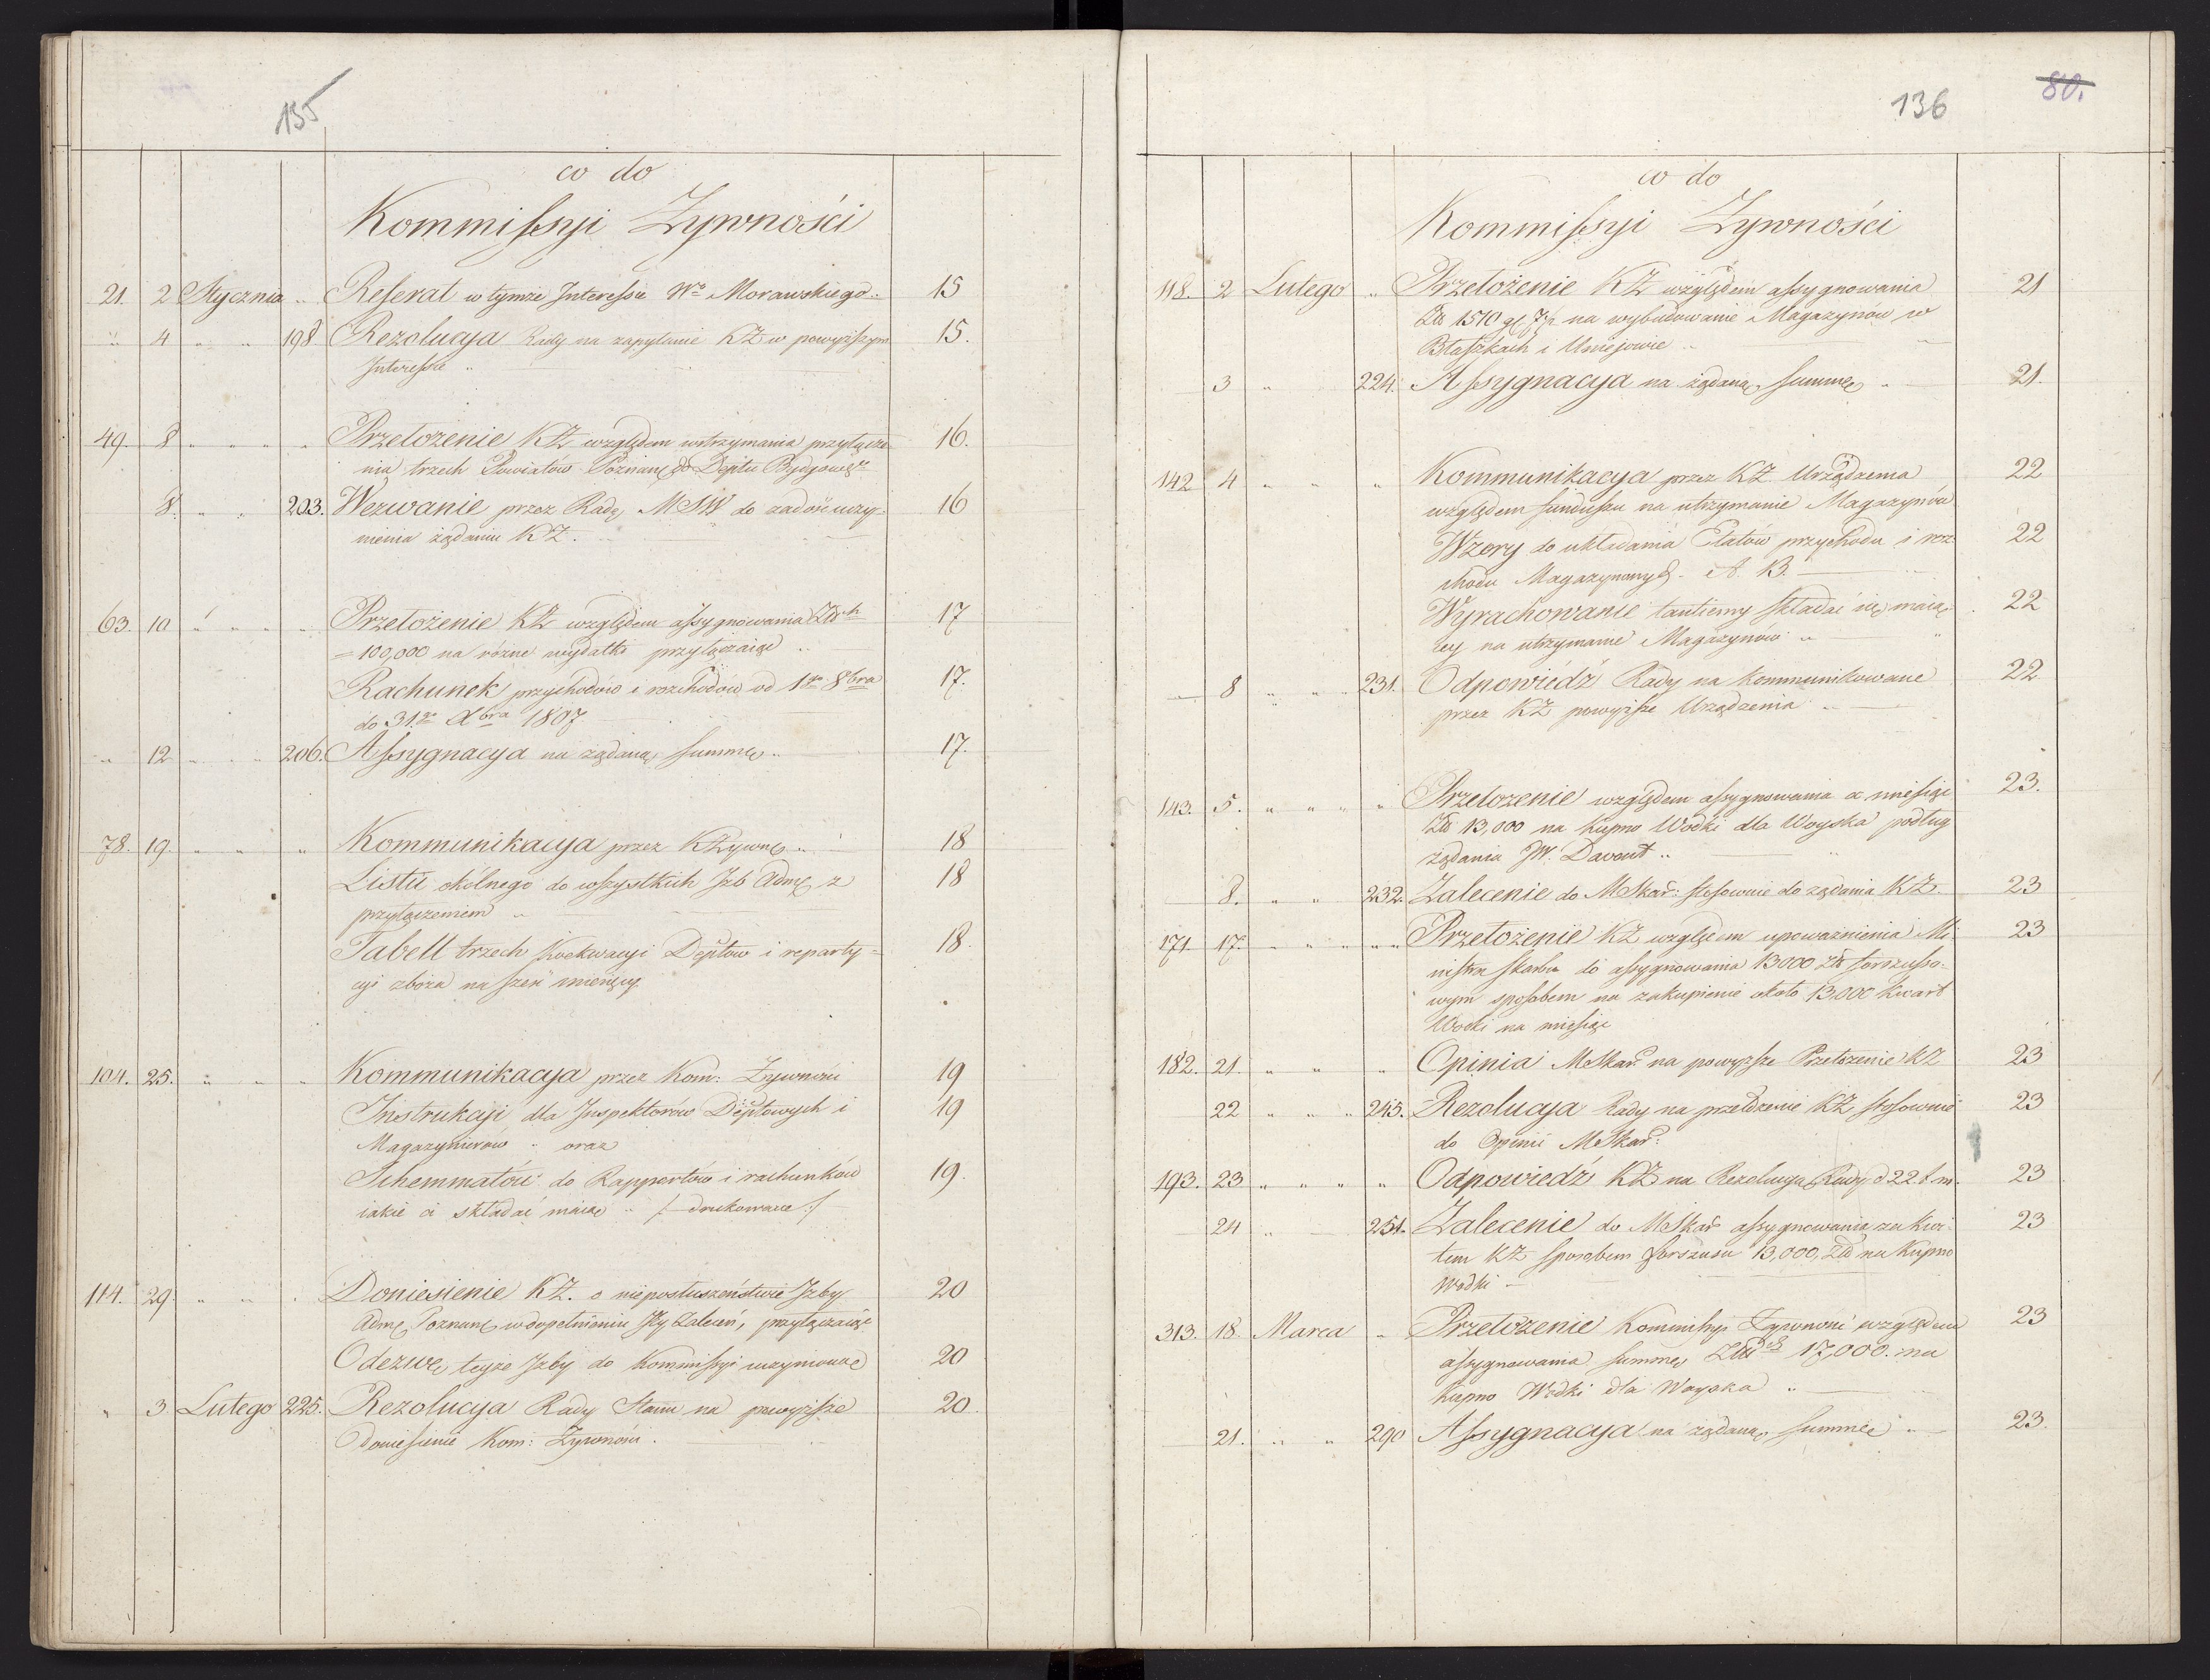 135
co do
Kommissyi Zywności
21. 2 Stycznia .. Referat w tymże Interessie Wo Morawskiego .. 15
" 4 " " 198 Rezolucya Rady na zapytanie KŻ w powyższym 15.
Interessie ..
49. 8 " " " " Przełożenie KŻ względem wstrzymania przyłącze- 16.
nia trzech Powiatów Poznanſ do Deptu Bydgowsgo
8. " " 203. Wezwanie przez Radę MSW do zadość uczy- 16
nienia żądaniu KŻ.
63. 10 " " " " Przełożenie KŻ względem assygnowania Złłch 17
= 100,000 na różne wydatki przyłączaiąc ..
Rachunek przychodów i rozchodów od 1go 8bra 17.
do 31go Xbra 1807
" 12 " " " 206. Assygnacya na żądaną summę .. 17.
78. 19. " " " Kommunikacya przez KŻywnś .. 18
Listu okólnego do wszystkich Izb Adme z 18
przyłączeniem ..
Tabell trzech Koekwacyi Deptow i reparty= 18.
cyi zboża na sześć miesięcy
104. 25. " " " Kommunikacya przez Kom: Żywności 19
Instrukcyi dla Inspektorów Deptowych i 19
Magazynierów .. oraz
Schemmatów do Rapportów i rachunków 19.
iakie ci składać maią .. /: drukowane :/
114. 29. " " . Doniesienie KŻ. o nieposłuszeństwie Izby 20
Adme Poznanſ w dopełnieniu Jey Zaleceń, przyłączaiąc
Odezwę teyże Izby do Kommissyi uczynioną 20
" 3 Lutego 225. Rezolucya Rady Stanu na powyższe 20
doniesienie Kom: Żywności.
136 80.
co do
Kommissyi Zywności
118. 2 Lutego " Przełożenie KŻ względem assygnowania 21
Złł 1510 gr 7 na wybudowanie Magazynów w
Błaszkach i Uniejowie ..
3 " 224. Assygnacya na żądaną summę .. 21.
142 4 " " " Kommunikacya przez KŻ Urządzenia 22
względem funduszu na utrzymanie Magazynów
Wzory do układania Etatów przychodu i roz- 22
chodu Magazynowych. A. B.
Wyrachowanie tantiemy składać się maią- 22
cey na utrzymanie Magazynów ..
8 " " " 231. Odpowiedź Rady na kommunikowane 22
przez KŻ powyższe Urządzenia ..
143. 5. " " " " Przełożenie względem assygnowania co miesiąc 23.
Złł 13,000 na kupno Wódki dla Woyska podług
żądania JW. Davout ..
8. " " 232. Zalecenie do MSkar: stosownie do żądania KŻ. 23
171 17. " " " " Przełożenie KŻ względem upoważnienia Mi- 23
nistra Skarbu do assygnowania 13000 Złł forszusso-
wym sposobem na zakupienie około 13,000 kwart
Wódki na miesiąc
182. 21. " " " Opinia MSkar: na powyższe Przełożenie KŻ 23
22 " " " 245. Rezolucya Rady na przełożenie KŻ, stosownie 23
do Opinii MSkar:
193. 23 " " " " Odpowiedź KŻ na Rezolucyą Rady d 22 b m. 23
24 " 251. Zalecenie do MSkar assygnowania za kwi- 23
tem KŻ sposobem forszusu 13,000, Złł na kupno
Wódki
313. 18. Marca " Przełożenie Kommissyi Żywności względem 23
assygnowania summy Złłch 17,000. na
kupno Wódki dla Woyska ..
21. " " 290 Assygnacya na żądaną summę .. 23.